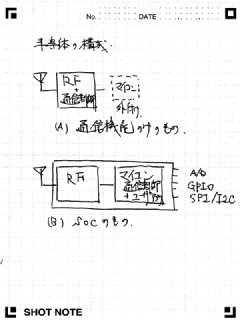 No.
DATE
半導体の構成.
RF
+
通信制御
マイコン
外付け
(A) 通信機能だけのもの.
RF
マイコン
通信制御
+ユーザ
A/D
GPIO
SPI/I2C
(B) SoCのもの.
SHOT NOTE